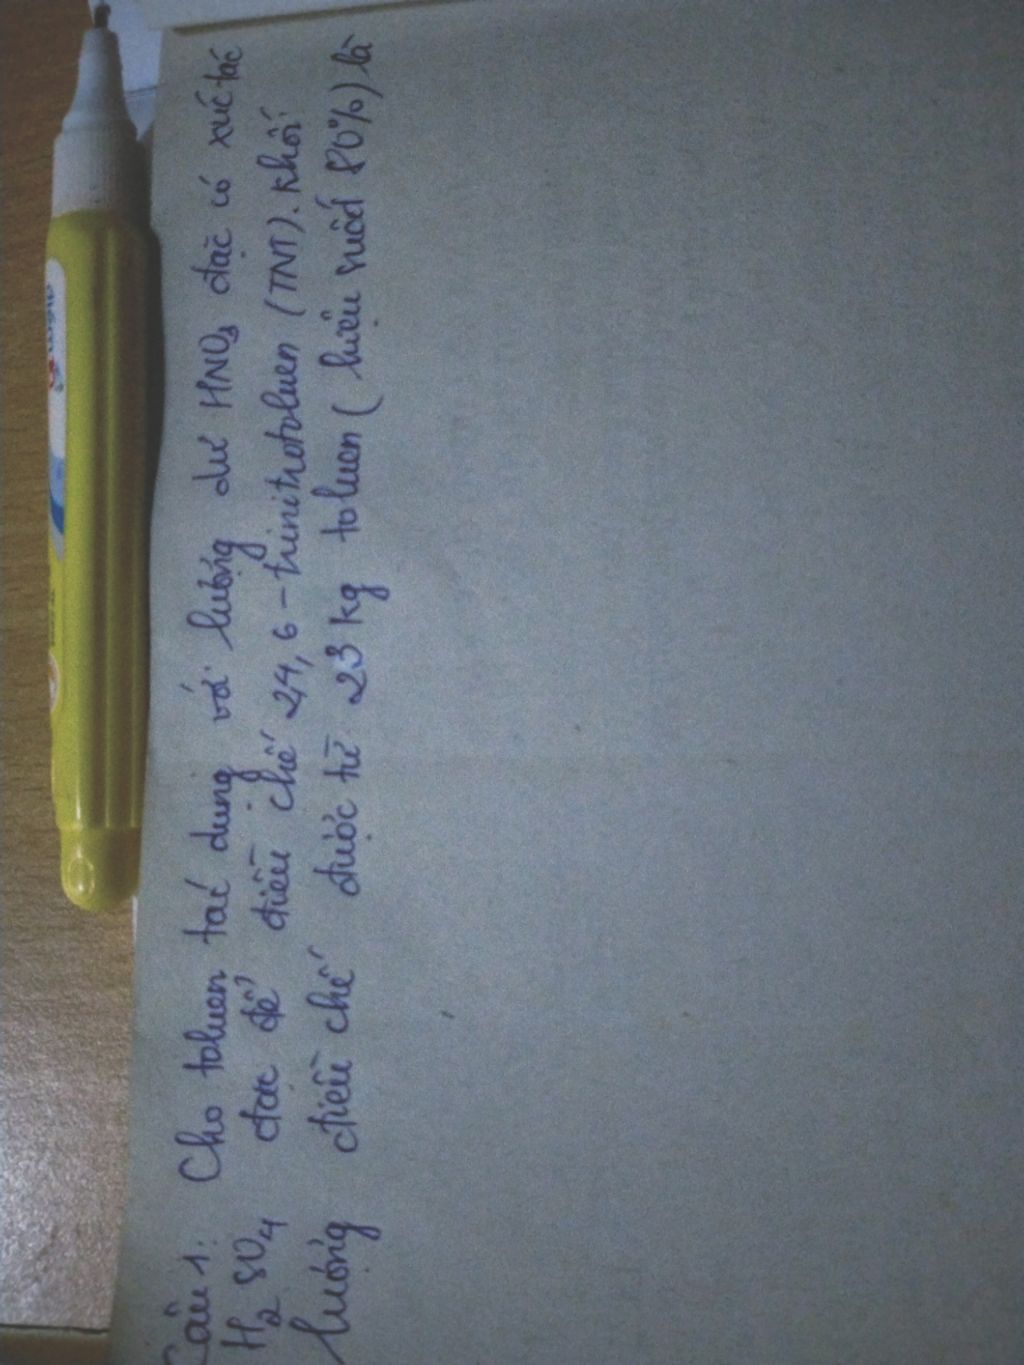 Câu 1: Cho toluen tác dụng với lượng dư HNO3 đặc có xúc tác
H2SO4 đặc để điều chế 2,4,6-trinitrotoluen (TNT). Khối
lượng điều chế được từ 23 kg toluen (hiệu suất 80%) là